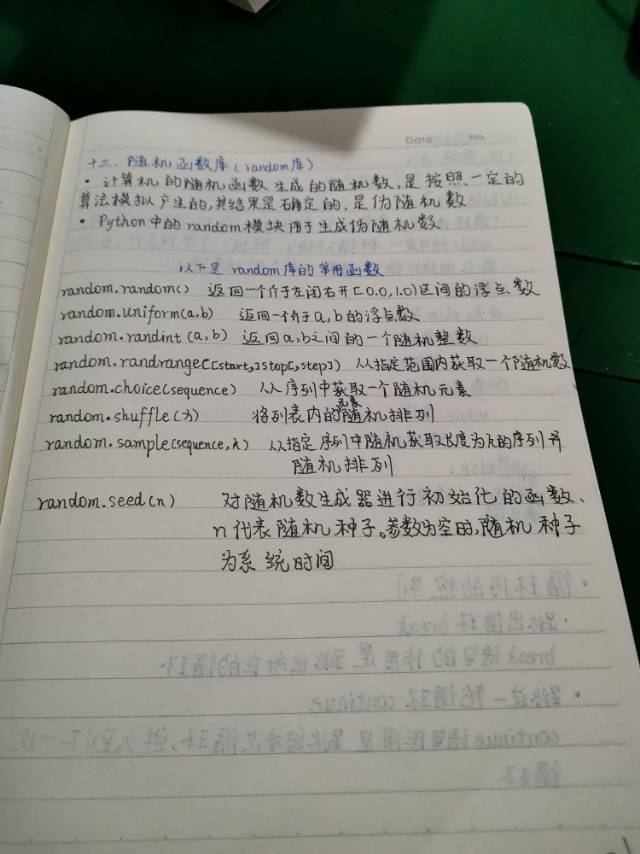 Date No.
十二、随机函数库(random库)
• 计算机的随机函数生成的随机数,是按照一定的
算法模拟产生的,其结果是确定的,是伪随机数
• Python中的random模块用于生成伪随机数
以下是random库的常用函数
random.random() 返回一个介于左闭右开[0.0,1.0)区间的浮点数
random.uniform(a,b) 返回一个介于a,b的浮点数
random.randint(a,b) 返回a,b之间的一个随机整数
random.randrange([start,]stop[,step]) 从指定范围内获取一个随机数
random.choice(sequence) 从序列中获取一个随机元素
random.shuffle(x) 将列表内的元素随机排列
random.sample(sequence,k) 从指定序列中随机获取长度为k的序列并
随机排列
random.seed(n) 对随机数生成器进行初始化的函数、
n代表随机种子。参数为空时,随机种子
为系统时间
• 循环内的控制
• 跳出循环break
break语句的作用是跳出所在的循环
• 跳过一轮循环continue
continue语句作用是跳出本次循环,进入到下一次
循环